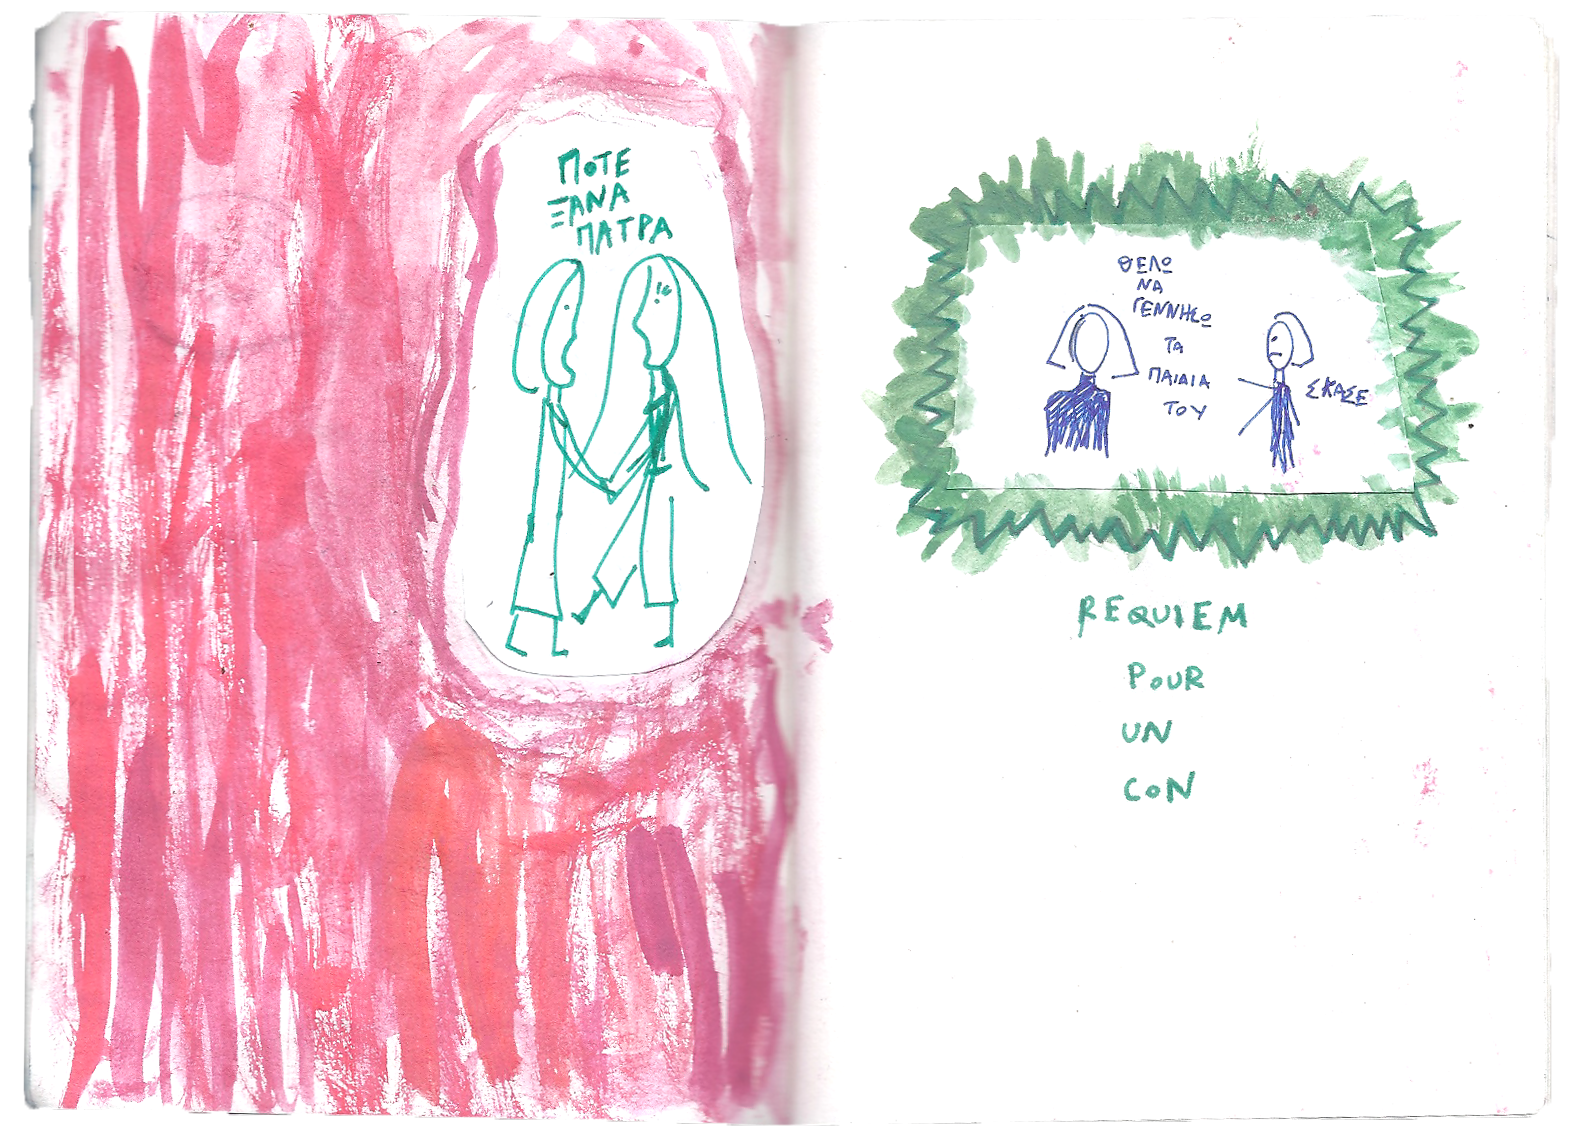 ΠΟΤΕ
ΞΑΝΑ
ΠΑΤΡΑ
ΘΕΛΩ
ΝΑ
ΓΕΝΝΗΣΩ
ΤΑ
ΠΑΙΔΙΑ
ΤΟΥ
ΣΚΑΣΕ
REQUIEM
POUR
UN
CON